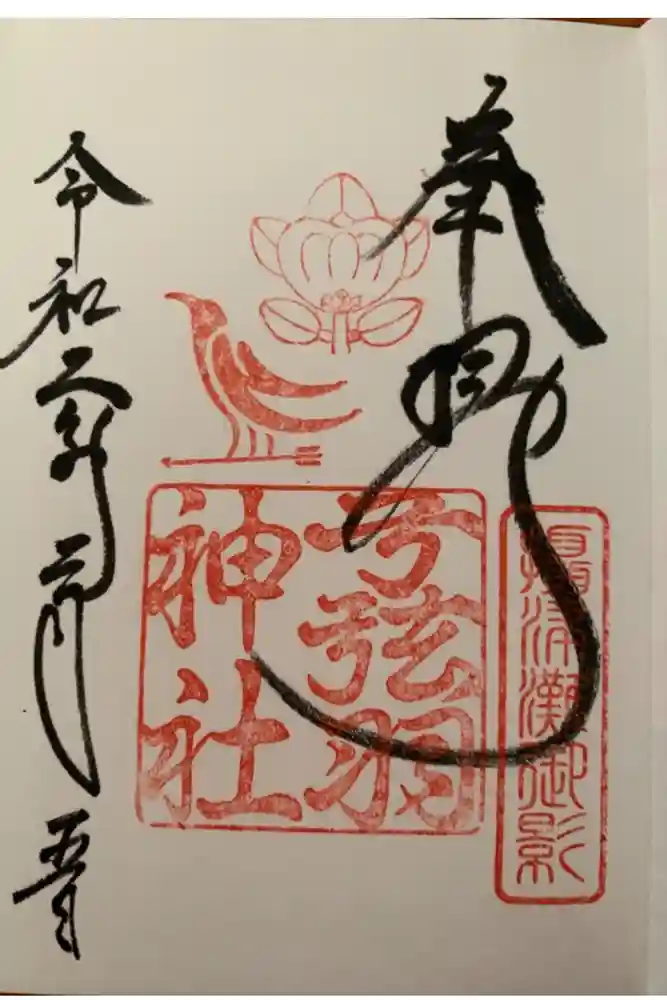 奉拝
攝津灘御影
弓弦羽
神社
令和二年二月五日